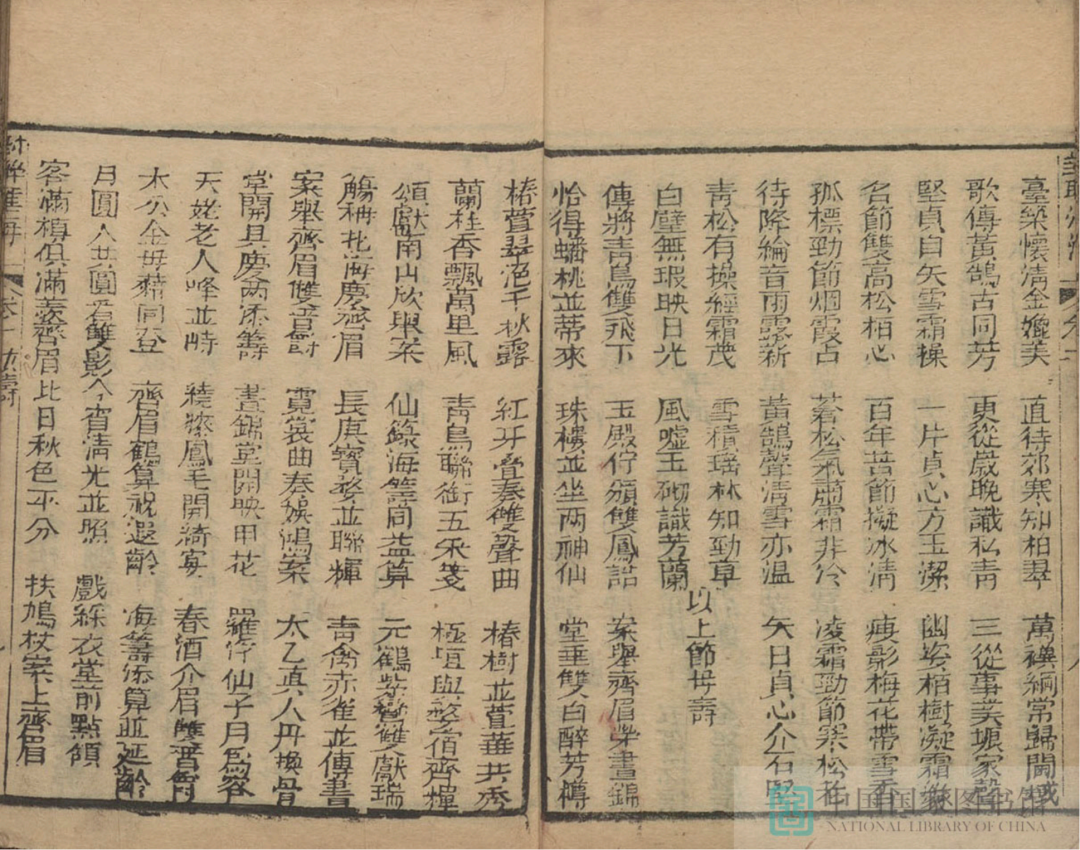 臺築懷清金孀美 直待郊寒知柏翠 萬禩綱常歸閫域
歌傳黃鵠古同芳 更從歲晚識松青 三從事業振家聲
堅貞自矢雪霜操 一片貞心方玉潔 幽姿栢樹凝霜
名節雙高松柏心 百年苦節擬冰清 瘦影梅花帶雪香
孤標勁節烟霞古 蒼松氣肅霜非冷 凌霜勁節寒松
待降綸音雨露新 黃鵠聲清雪亦溫 矢日貞心介石堅
青松有操經霜茂 雪積瑶林知勁草
白璧無瑕映日光 風噓玉砌識芳蘭 以上節母壽
傳將青鳥雙飛下 玉殿佇頒雙鳳誥 案舉齊眉榮晝錦
恰得蟠桃並蒂來 珠樓並坐两神仙 堂垂雙白醉芳樽
椿萱翠浥千秋露 紅牙疊奏雙聲曲 椿樹並萱華共秀
蘭桂香飄萬里風 青鳥聯銜五采箋 極垣與婺宿齊輝
頌獻南山欣舉案 仙籙海籌同益算 元鶴紫鸞雙獻瑞
觴稱北海慶齊眉 長庚寶婺並聯輝 青禽赤雀並傳書
案舉齊眉雙晋爵 霓裳曲奏娛鴻案 太乙真人丹換骨
堂開具慶两添籌 晝錦堂開映甲花 羅浮仙子月爲容
天姥老人峰並峙 繞膝鳳毛開綺宴 春酒介眉雙晋爵
木公金母籍同登 齊眉鶴算祝遐齡 海籌添算並延齡
月圓人共圓看雙影今宵清光並照 戲綵衣堂前點頷
客滿樽俱滿羡齊眉此日秋色平分 扶鳩杖案上齊眉
卷一 壽
中国国家图书馆
NATIONAL LIBRARY OF CHINA